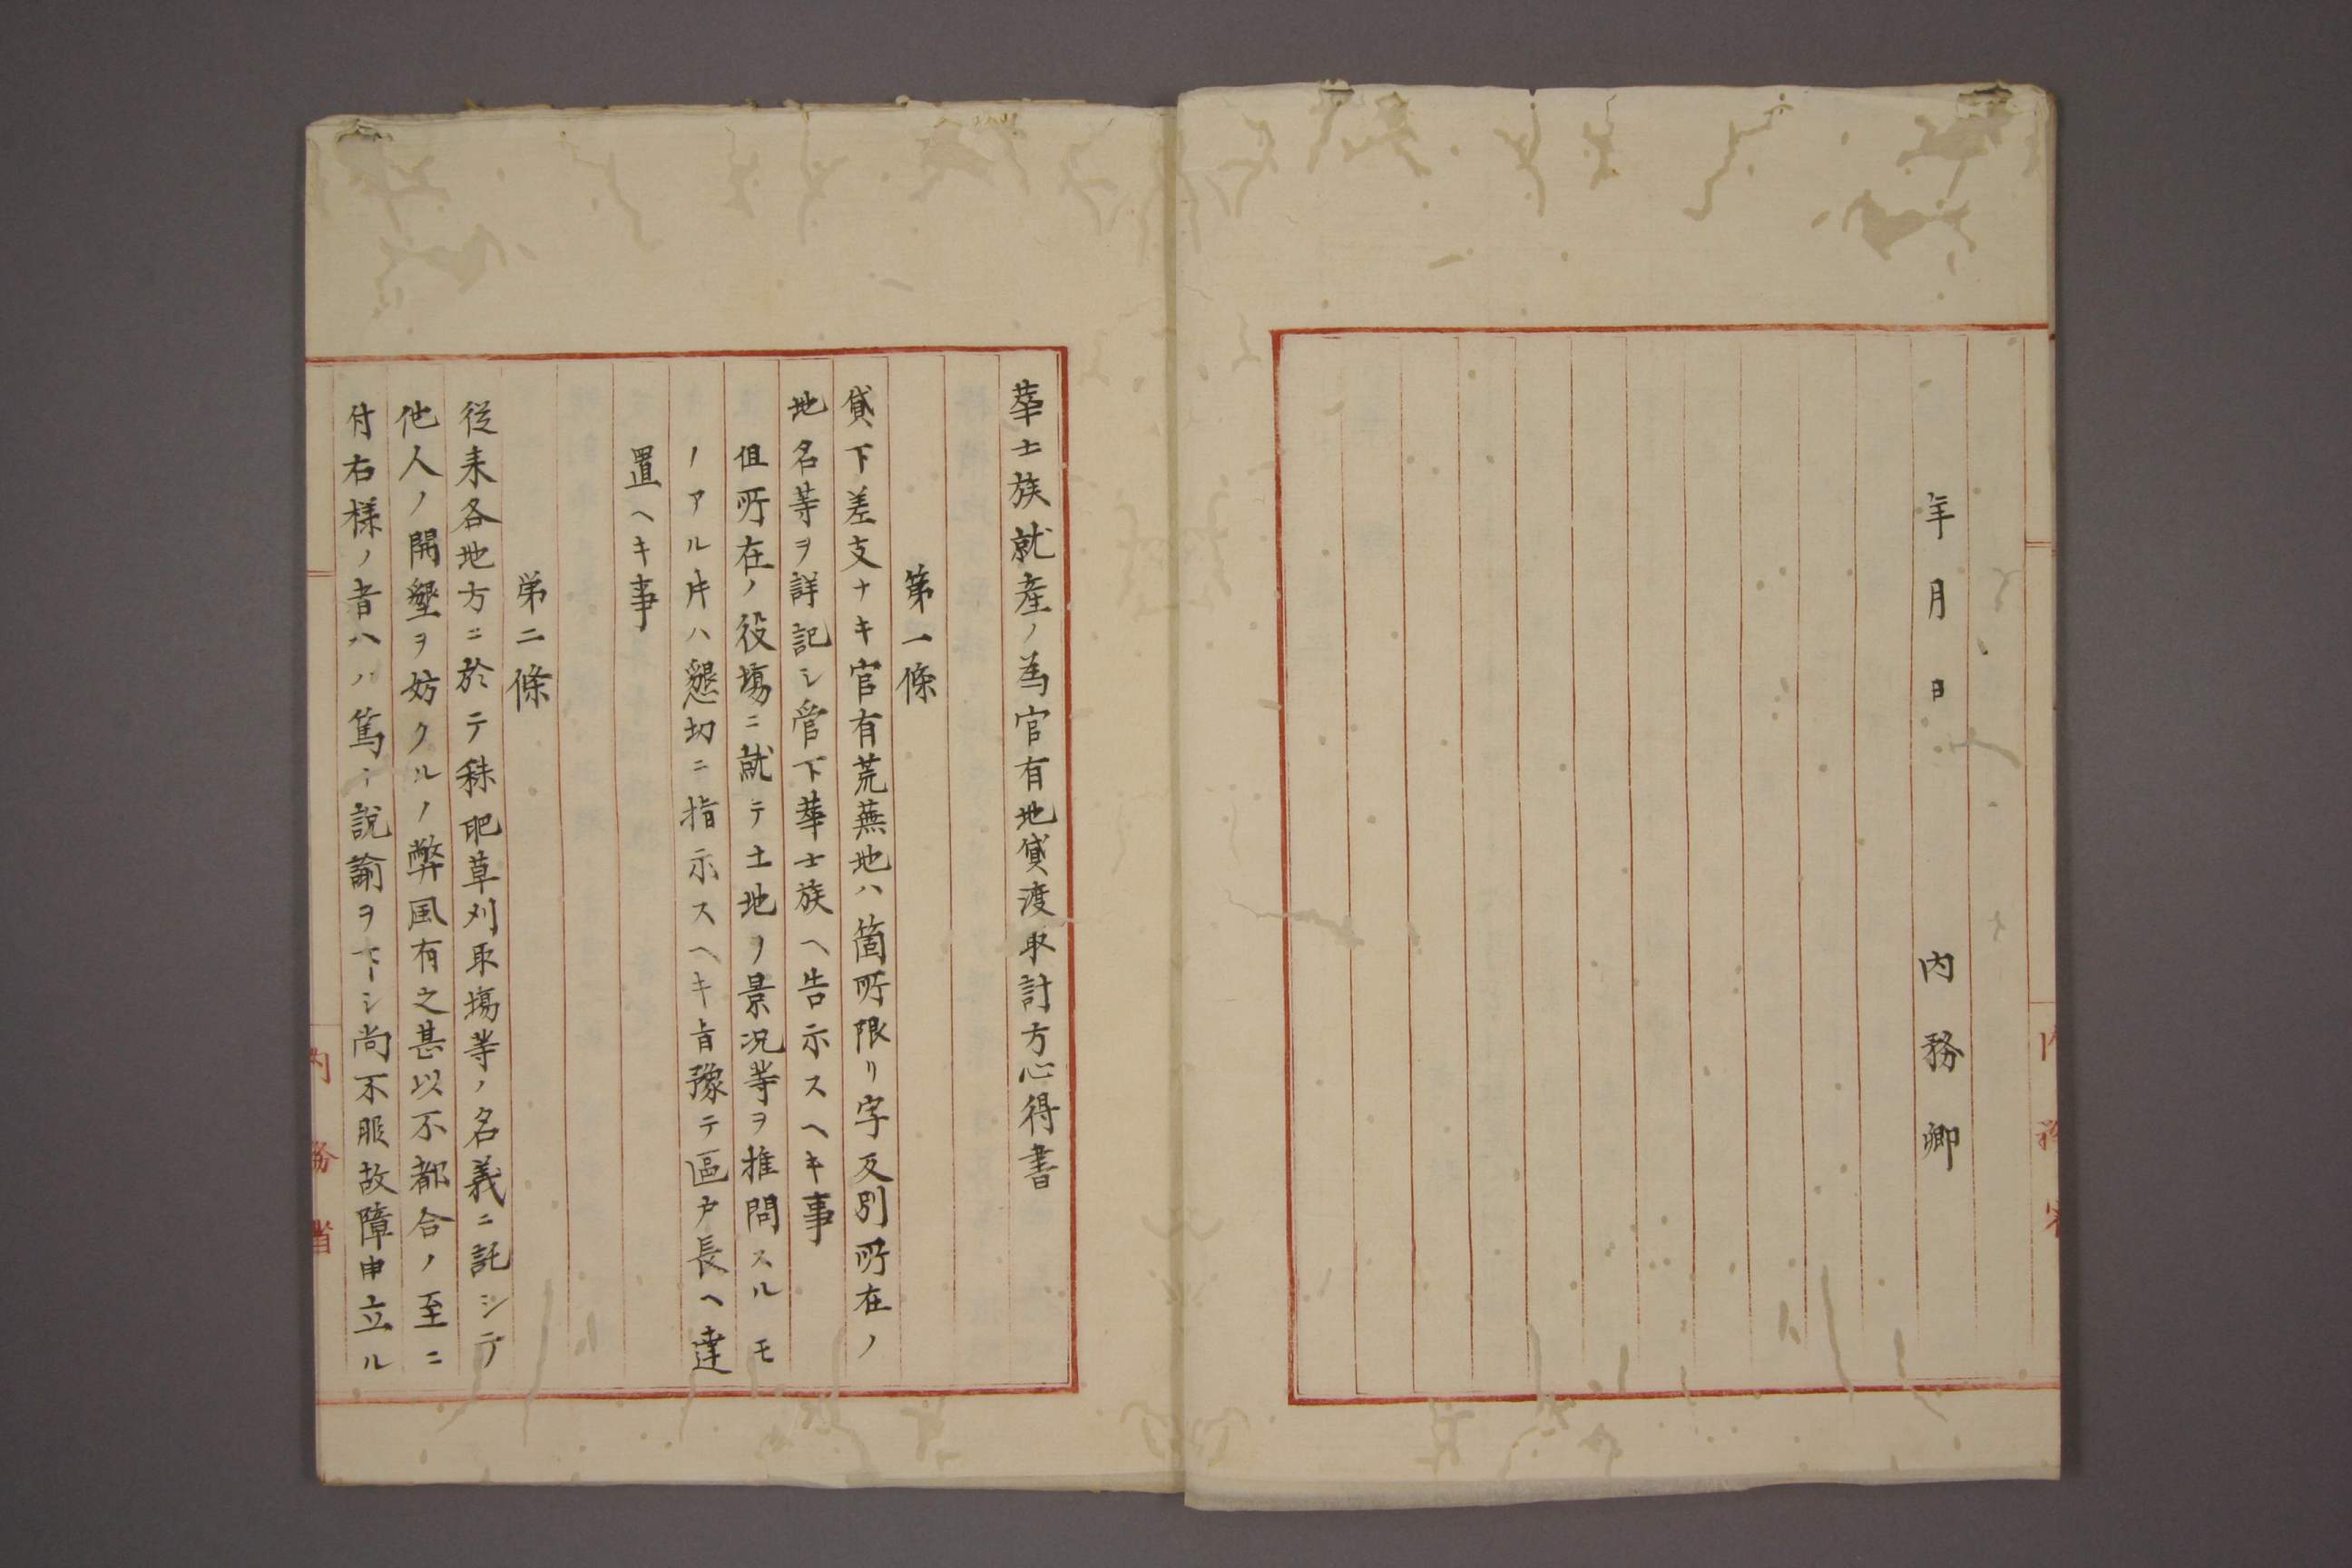 年月日
内務卿
内務省
華士族就産ノ為官有地貸渡取計方心得書
第一條
貸下差支ナキ官有荒蕪地ハ箇所限リ字反別所在ノ
地名等ヲ詳記シ管下華士族ヘ告示スヘキ事
但所在ノ役塲ニ就テ土地ノ景况等ヲ推問スルモ
ノアル片ハ懇切ニ指示スヘキ旨豫テ區戸長ヘ達
置ヘキ事
第二條
従来各地方ニ於テ秣肥草刈取塲等ノ名義ニ託シテ
他人ノ開墾ヲ妨クルノ弊風有之甚以不都合ノ至ニ
付右様ノ者ハ篤ニ説諭ヲ下シ尚不服故障申立ル
内務省